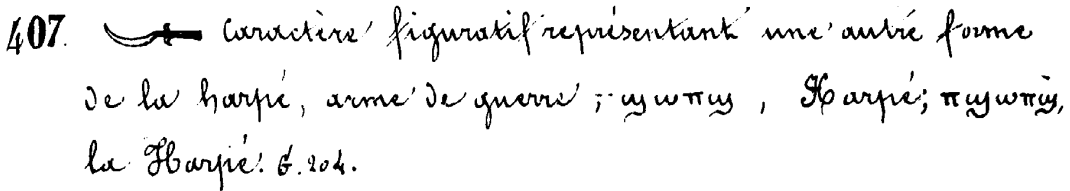 407. Caractère figuratif représentant une autre forme
de la harpé, arme de guerre; ϣⲱⲡϣ, Harpé; ⲡϣⲱⲡϣ,
la Harpé. G. 204.